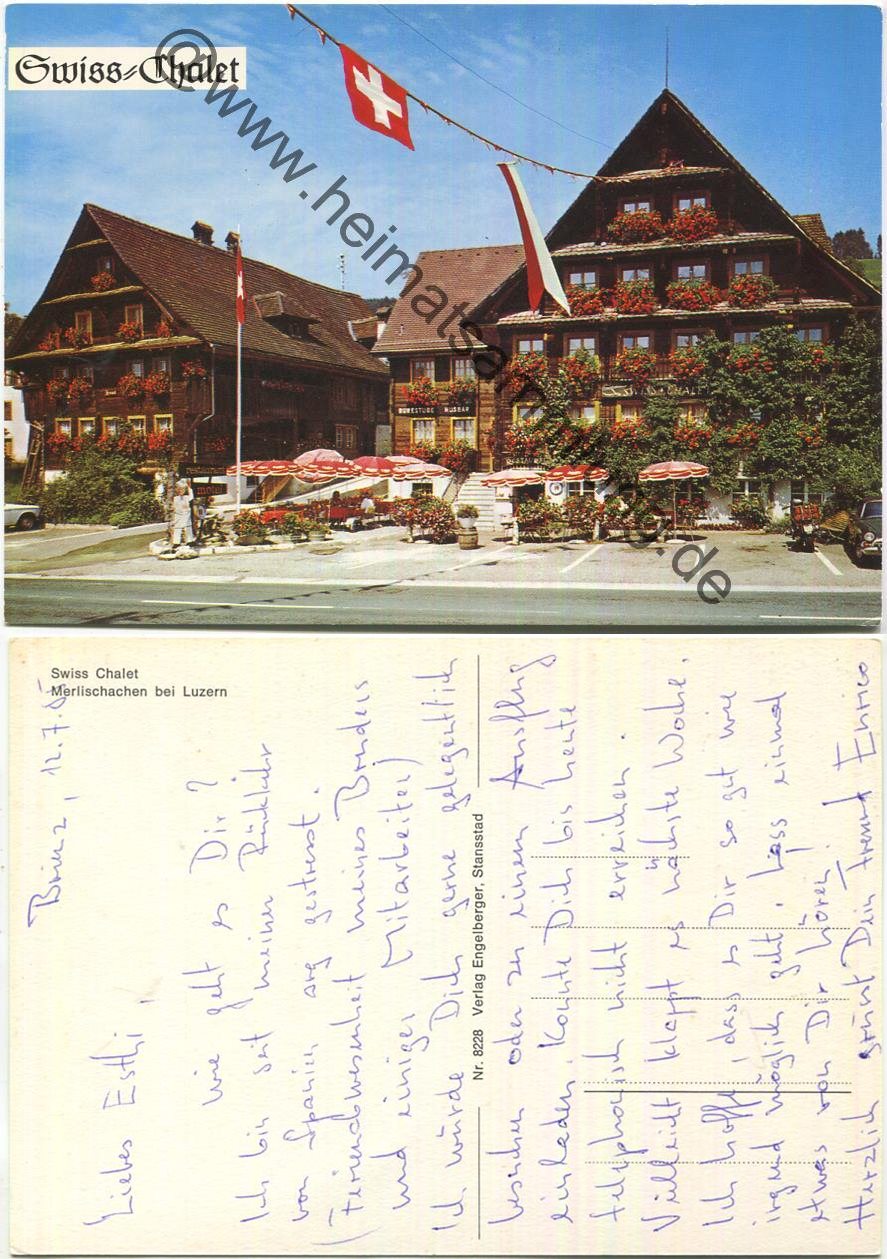 Swiss-Chalet
@www.heimatsammlung.de
BURESTUBE MUSBAR
SWISS CHALET
Swiss Chalet
Merlischachen bei Luzern
Nr. 8228 Verlag Engelberger, Stansstad
Brienz, 12.7.85
Liebes Esthi,
Wie geht es Dir?
Ich bin seit meiner Rückkehr
von Spanien arg gestresst.
(Ferienabwesenheit meines Bruders
und einiger Mitarbeiter)
Ich würde Dich gerne gelegentlich
besuchen oder zu einem Ausflug
einladen. Konnte Dich bis heute
telephonisch nicht erreichen.
Vielleicht klappt es nächste Woche.
Ich hoffe, dass es Dir so gut wie
irgend möglich geht. Lass einmal
etwas von Dir hören.
Herzlich grüsst Dein Freund Enrico